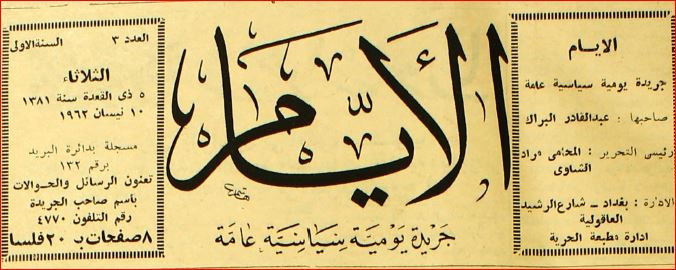 الايام
جريدة يومية سياسية عامة
صاحبها : عبدالقادر البراك
رئيس التحرير : المحامي مراد
الشاوى
الادارة : بغداد ــ شارع الرشيد
العاقولية
ادارة مطبعة الحرية
الأيام
جريدة يومية سياسية عامة
العدد ٣ السنة الاولى
الثلاثاء
٥ ذى القعدة سنة ١٣٨١
١٠ نيسان ١٩٦٢
مسجلة بدائرة البريد
برقم ١٣٢
تعنون الرسائل والحوالات
باسم صاحب الجريدة
رقم التلفون ٤٧٧٠
٨ صفحات ب ٢٠ فلسا